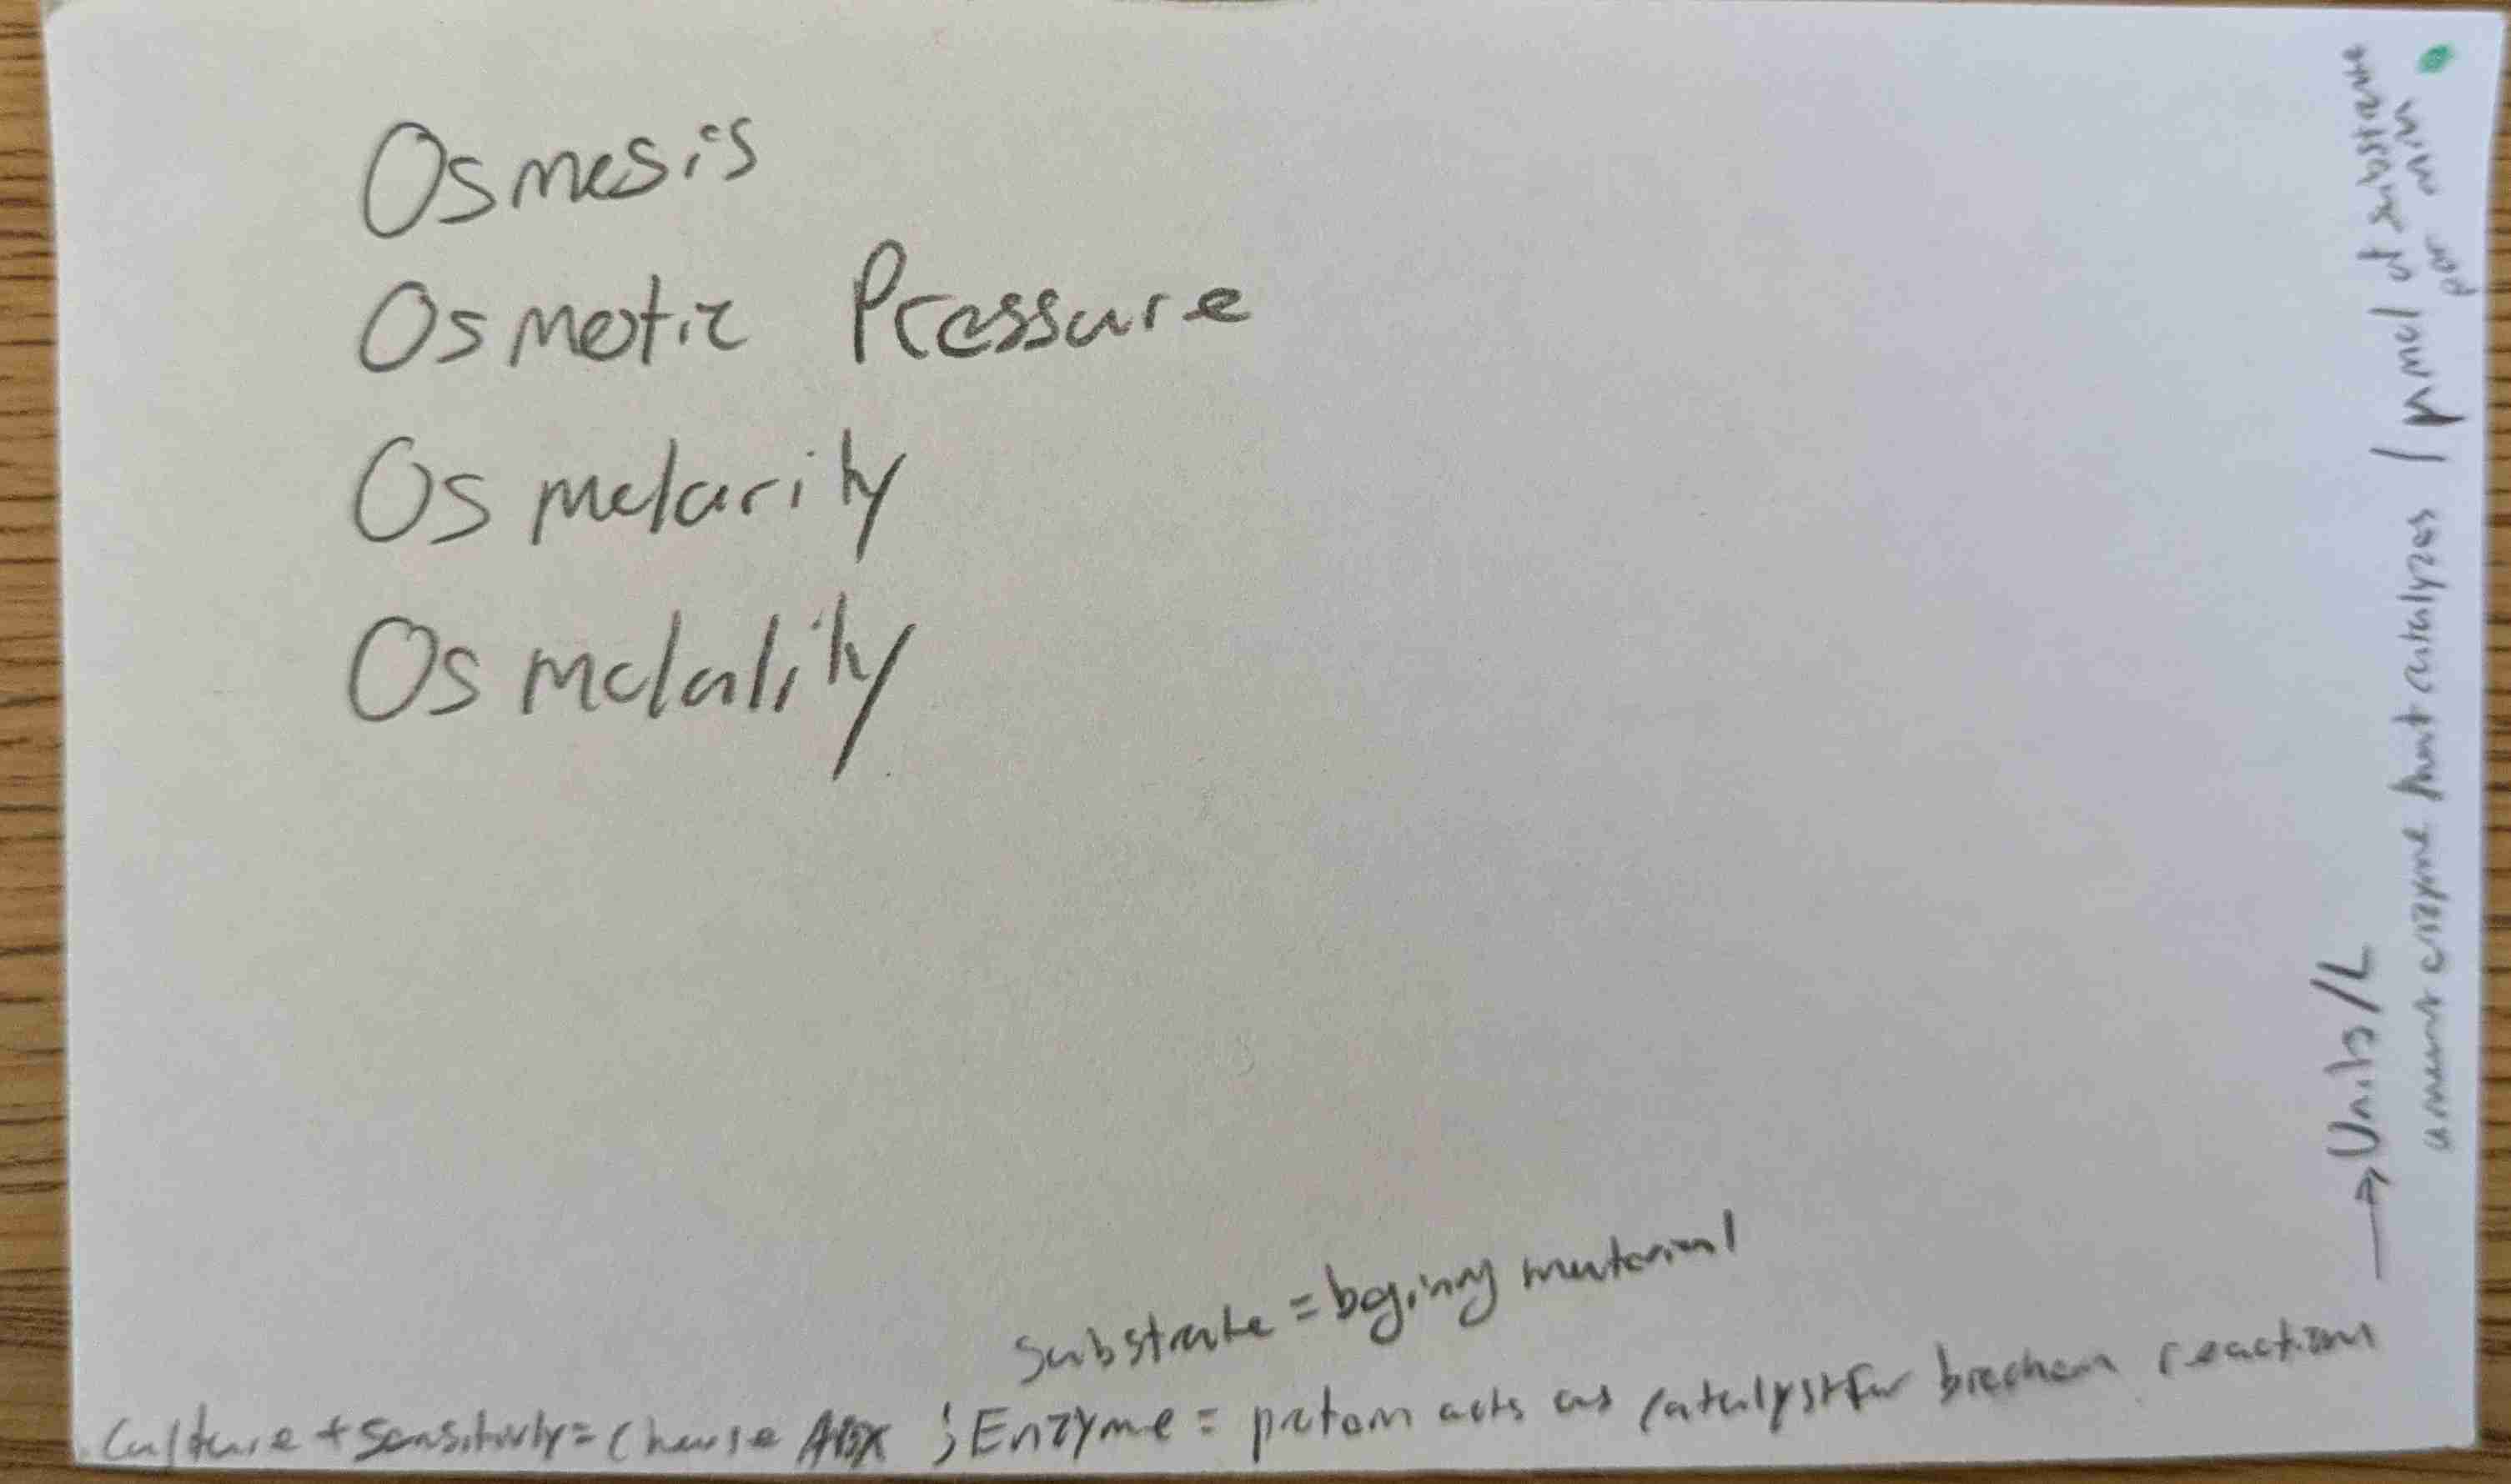 Osmosis
Osmotic Pressure
Osmolarity
Osmolality
Substrate = begining material
Culture + Sensitivity = Choose ABX ; Enzyme = protein acts as catalyst for biochem reaction
→ Units/L
amount enzyme that catalyzes 1 µmol of substrate
per min